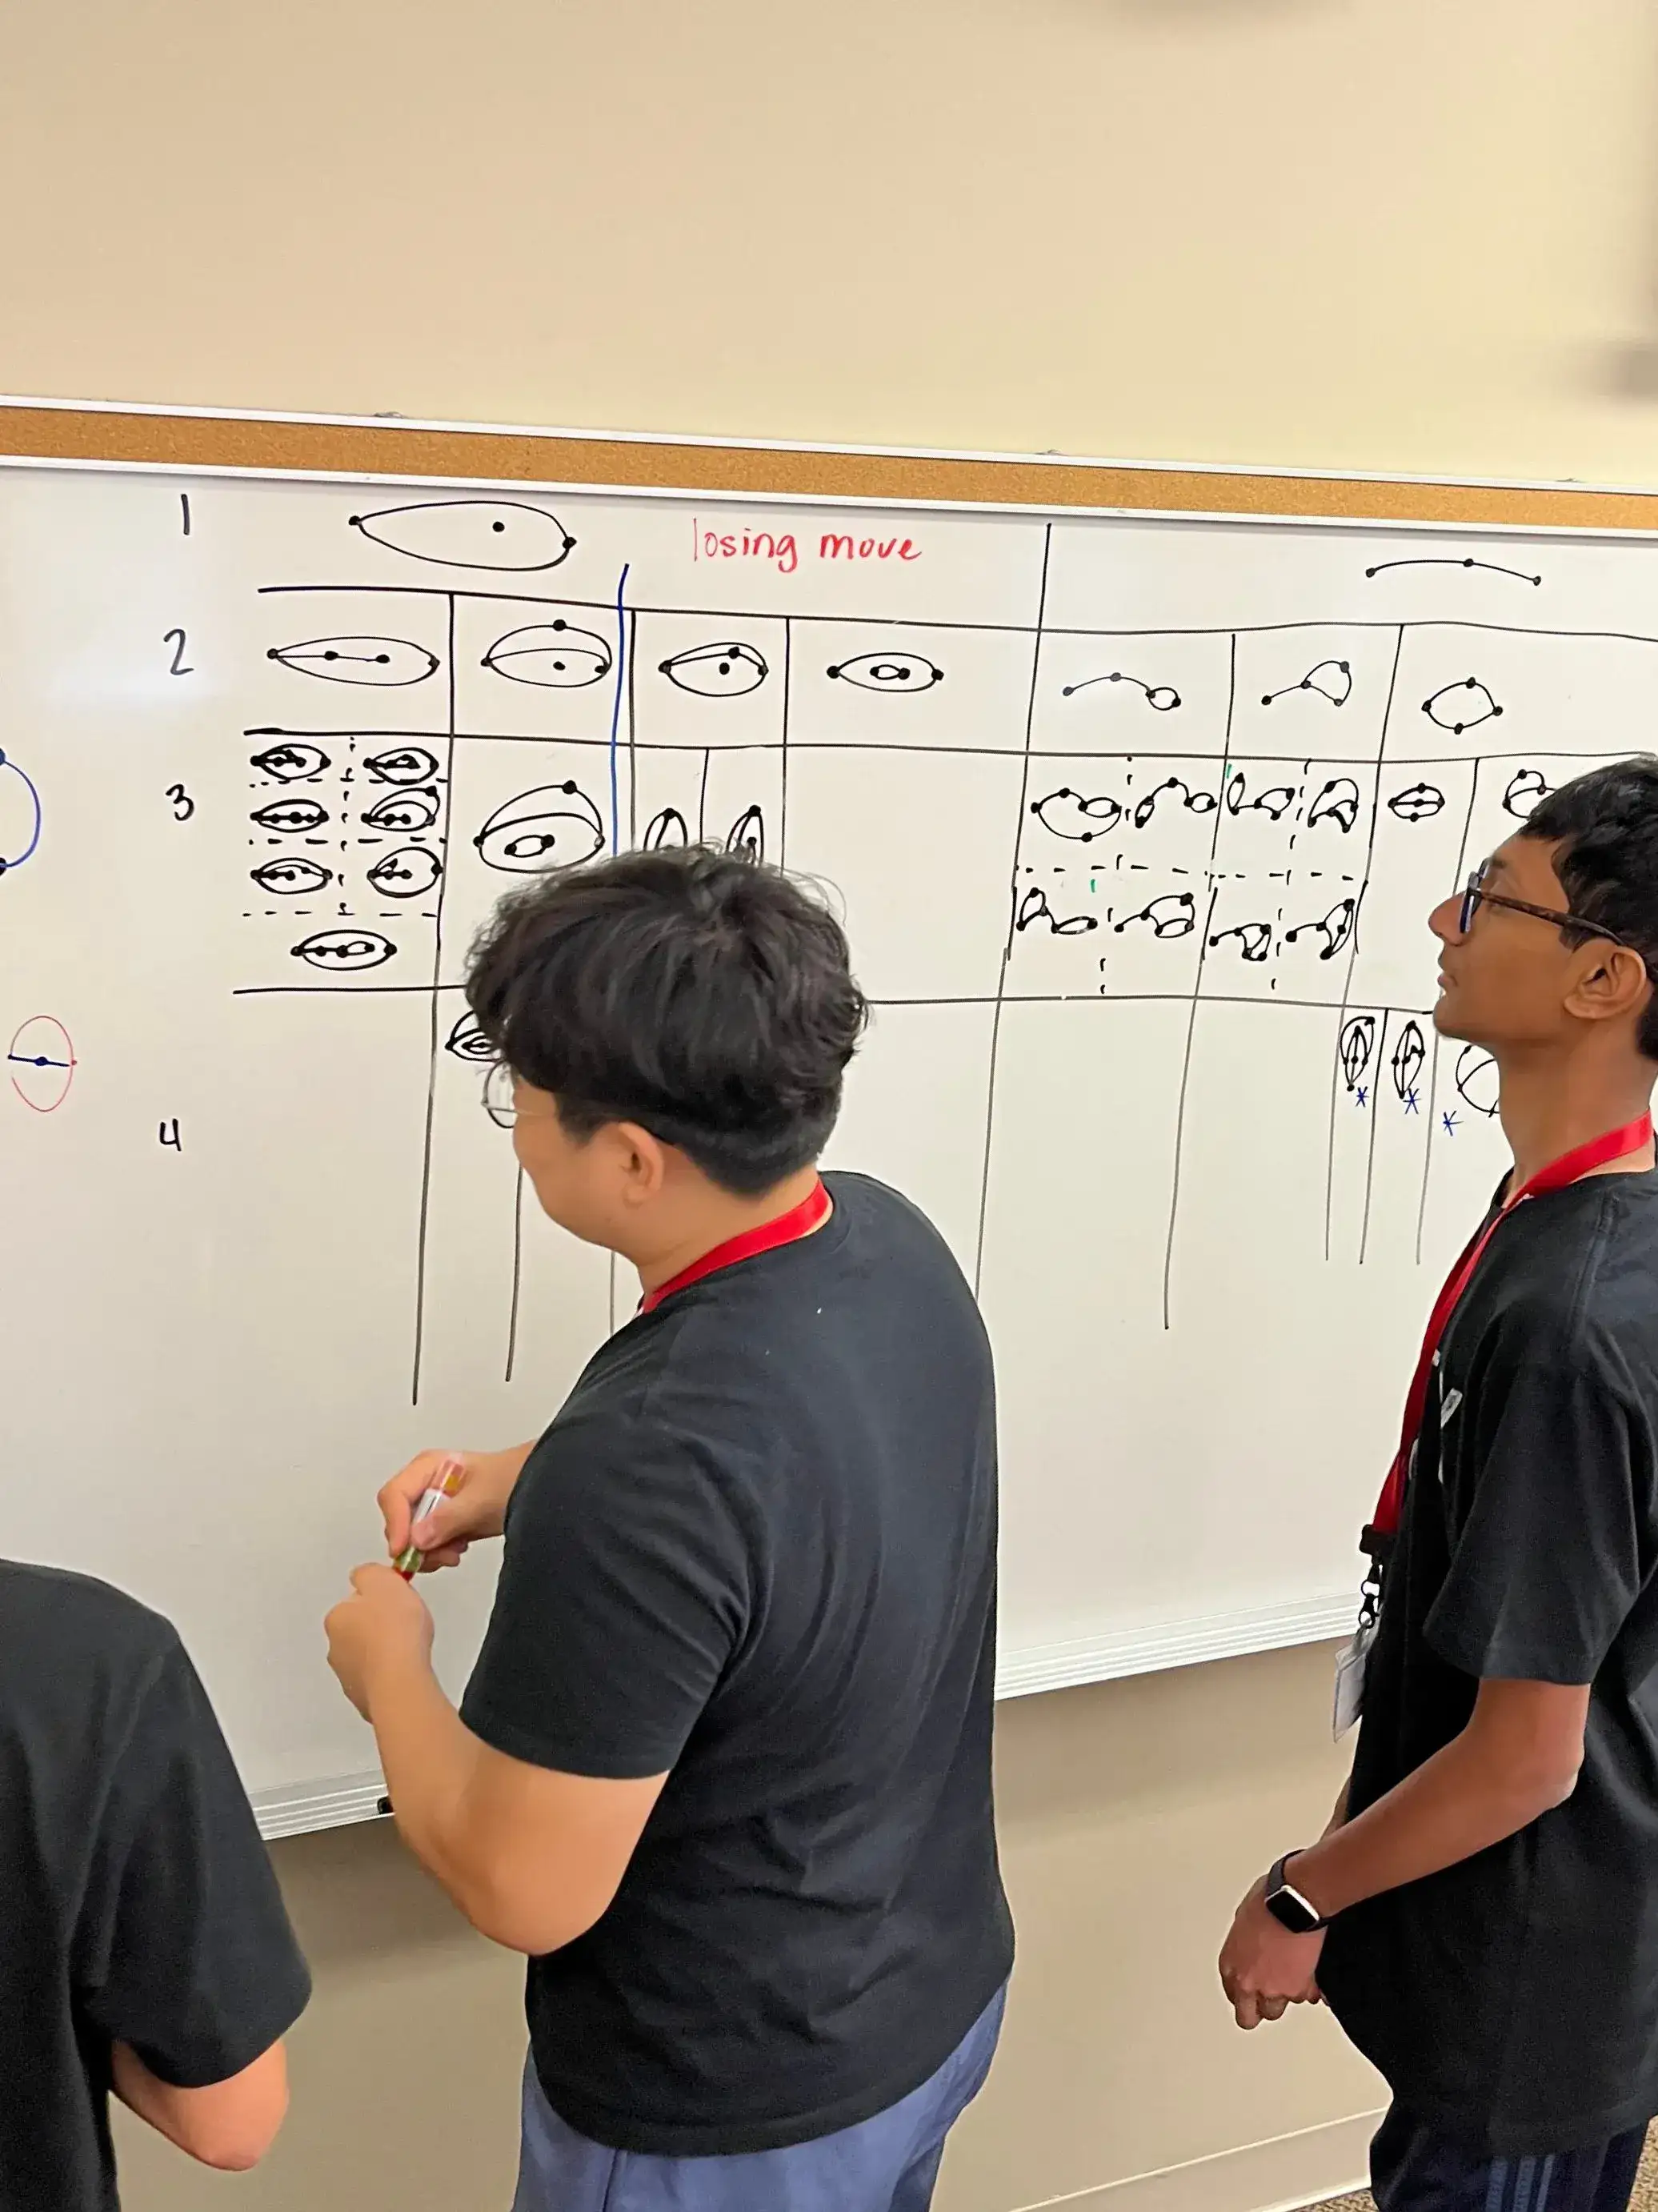 1
losing move
2
3
4